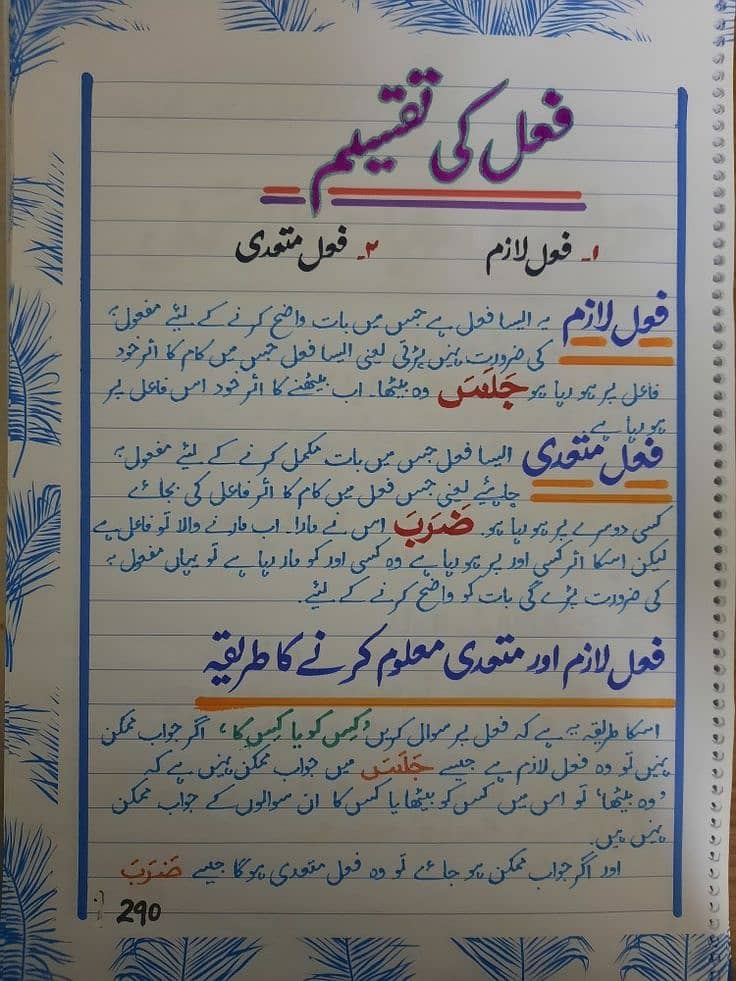 فعل کی تقسیم
۱۔ فعل لازم ۲۔ فعل متعدی
فعل لازم یہ ایسا فعل ہے جس میں بات واضح کرنے کے لئیے مفعول بہ
کی ضرورت نہیں پڑتی یعنی ایسا فعل جس میں کام کا اثر خود
فاعل پر ہو رہا ہو جَلَسَ وہ بیٹھا۔ اب بیٹھنے کا اثر خود اس فاعل پر
ہو رہا ہے۔
فعل متعدی ایسا فعل جس میں بات مکمل کرنے کے لئیے مفعول بہ
چاہئیے یعنی جس فعل میں کام کا اثر فاعل کی بجائے
کسی دوسرے پر ہو رہا ہو۔ ضَرَبَ اس نے مارا۔ اب مارنے والا تو فاعل ہے
لیکن اسکا اثر کسی اور پر ہو رہا ہے وہ کسی اور کو مار رہا ہے تو یہاں مفعول بہ
کی ضرورت پڑے گی بات کو واضح کرنے کے لئیے۔
فعل لازم اور متعدی معلوم کرنے کا طریقہ
اسکا طریقہ یہ ہے کہ فعل پر سوال کریں 'کِس کو یا کِس کا'، اگر جواب ممکن
نہیں تو وہ فعل لازم ہے جیسے جَلَسَ میں جواب ممکن نہیں ہے کہ
'وہ بیٹھا' تو اس میں کس کو بیٹھا یا کس کا ان سوالوں کے جواب ممکن
نہیں ہیں۔
اور اگر جواب ممکن ہو جائے تو وہ فعل متعدی ہوگا جیسے ضَرَبَ
290